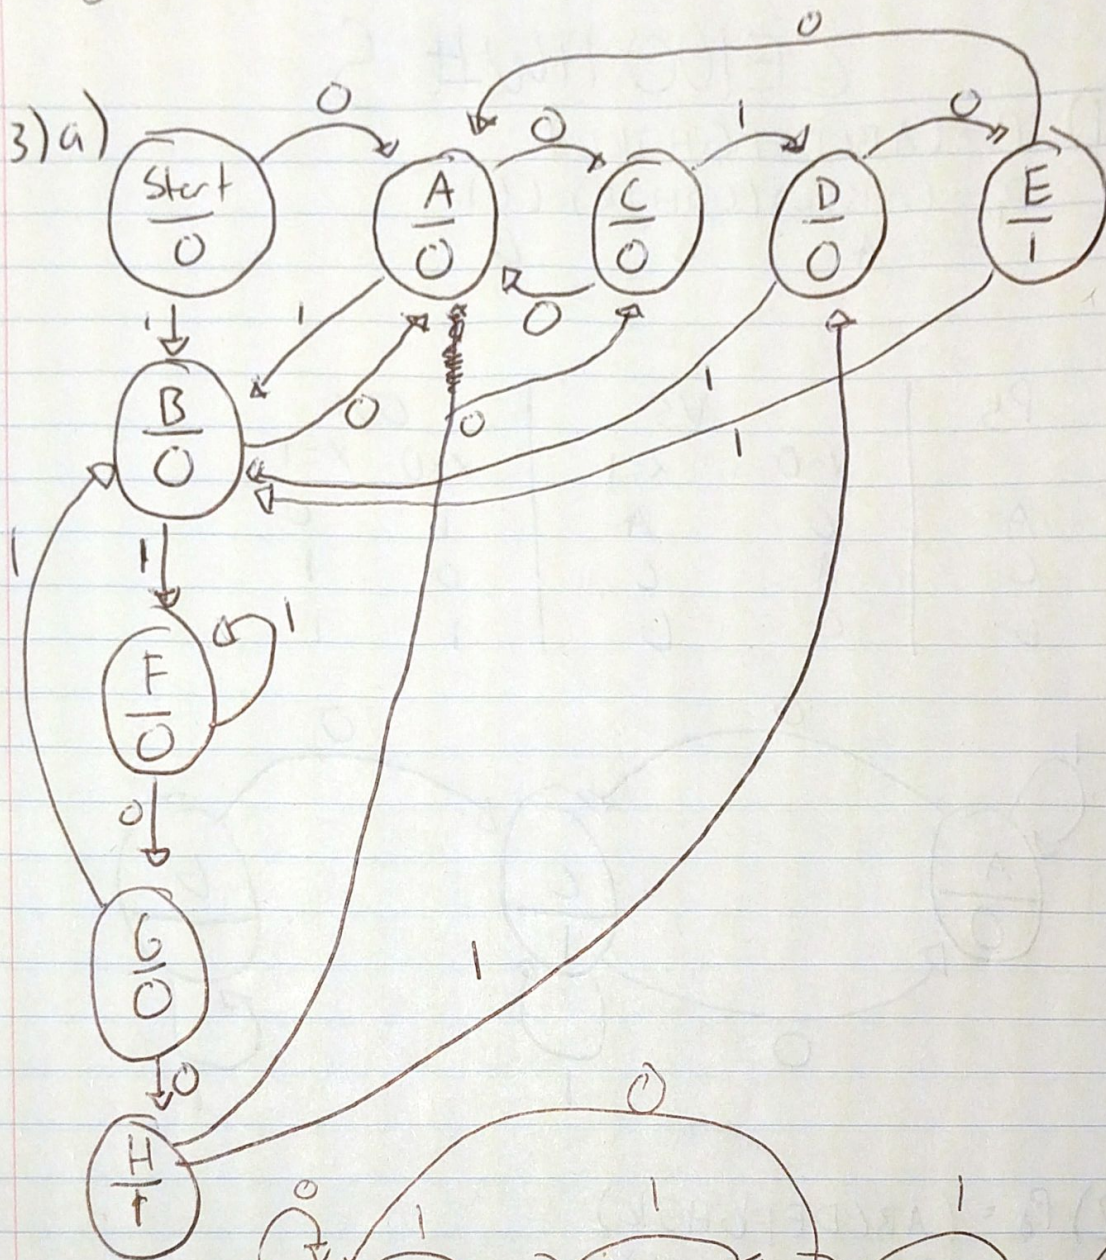 3) a)
0
0
0
1
0
Start
0
A
0
C
0
D
0
E
1
1
1
0
B
0
0
0
1
1
1
1
F
0
1
0
G
0
1
0
H
1
0
0
1
1
1